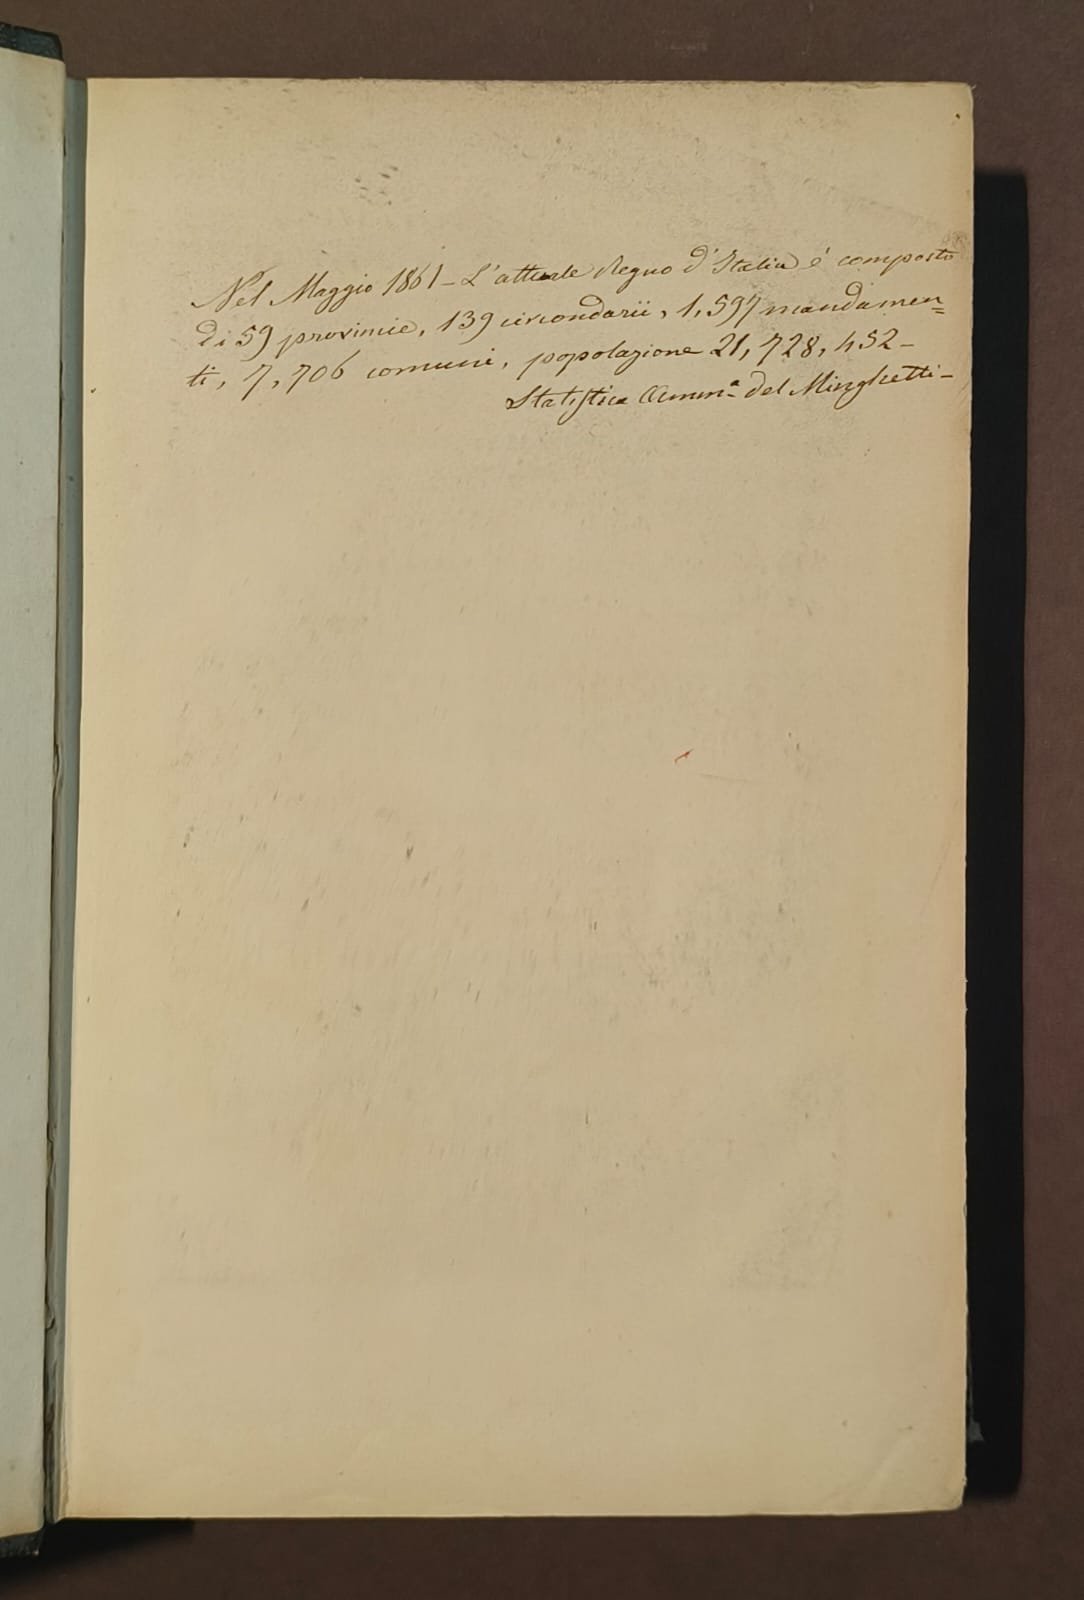 Nel Maggio 1861 – L'attuale Regno d'Italia é composto
di 59 provincie, 139 circondarii, 1,597 mandamen=
ti, 7,706 comuni, popolazione 21,728,452 –
Statistica Amm.ª del Minghetti –